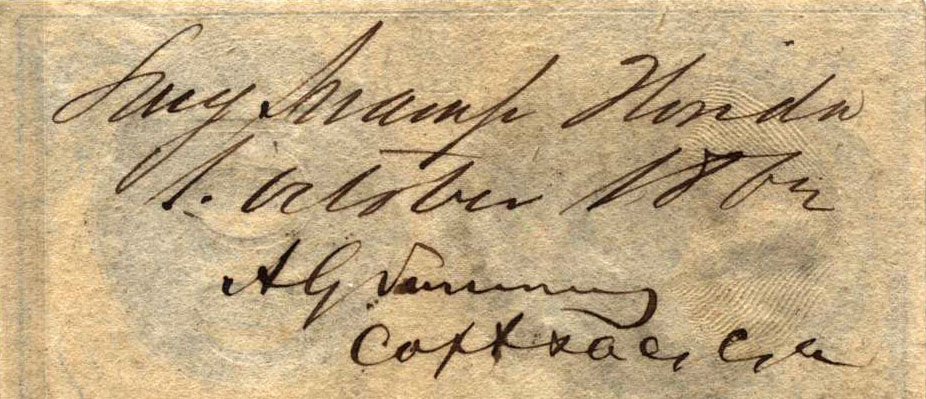 Long Swamp Florida
1. October 1862
A G Summer
Capt &